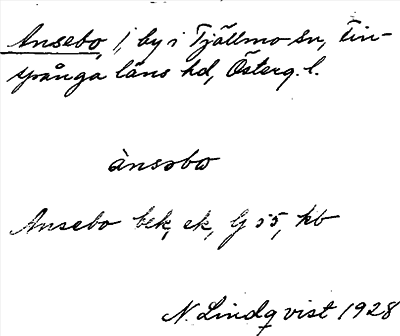 Ansebo, i, by i Tjällmo sn, Fin-
spånga läns hd, Österg. l.
ànsəbω
Ansebo bek, ek, G 55, kb
N. Lindqvist 1928